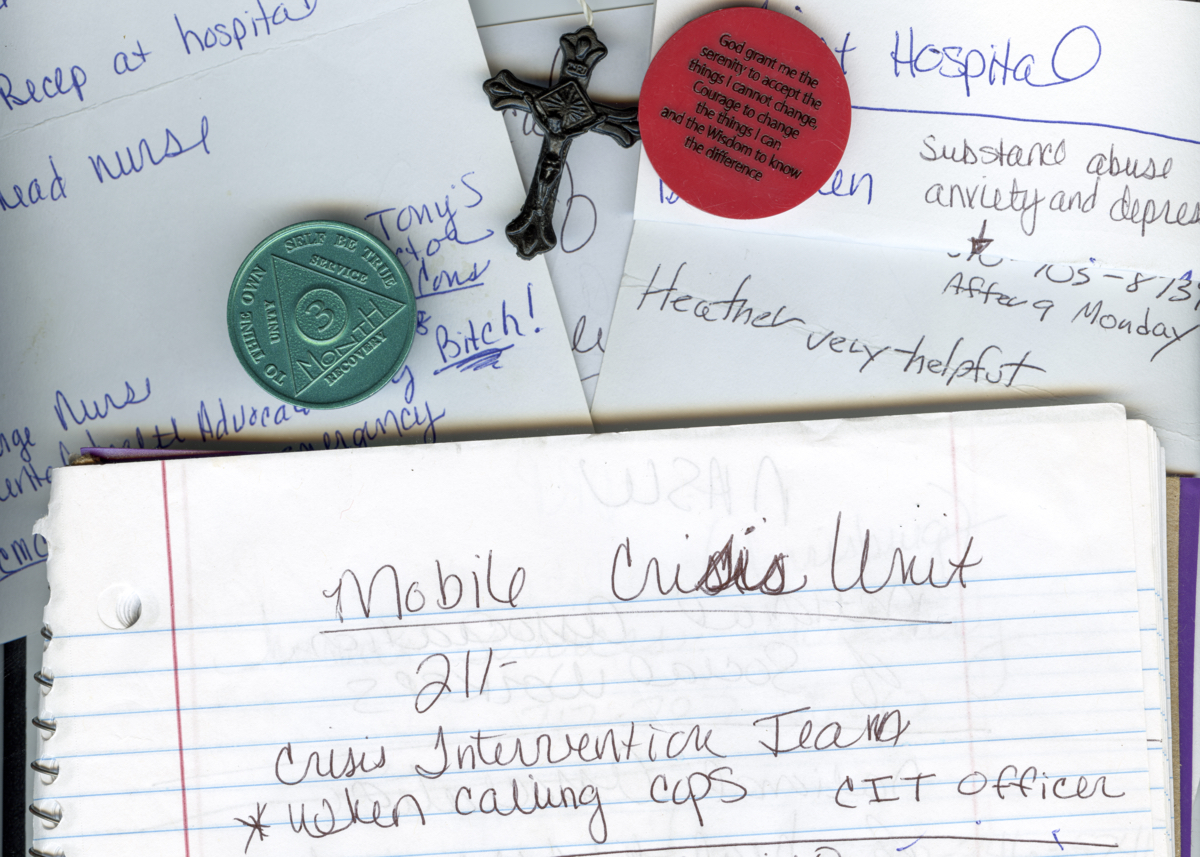 Recep at hospital
head nurse
Tony's
Cons
Bitch!
Nurse
Health Advocat
emergancy
CMC
TO THINE OWN SELF BE TRUE
SERVICE
UNITY
RECOVERY
3
MONTH
God grant me the
serenity to accept the
things I cannot change,
Courage to change
the things I can,
and the Wisdom to know
the difference
Hospital
Substance abuse
anxiety and depres
After 9 Monday
Heather very helpful
NASW
Mobile Crisis Unit
211-
Crisis Intervention Team
* when calling cops CIT Officer